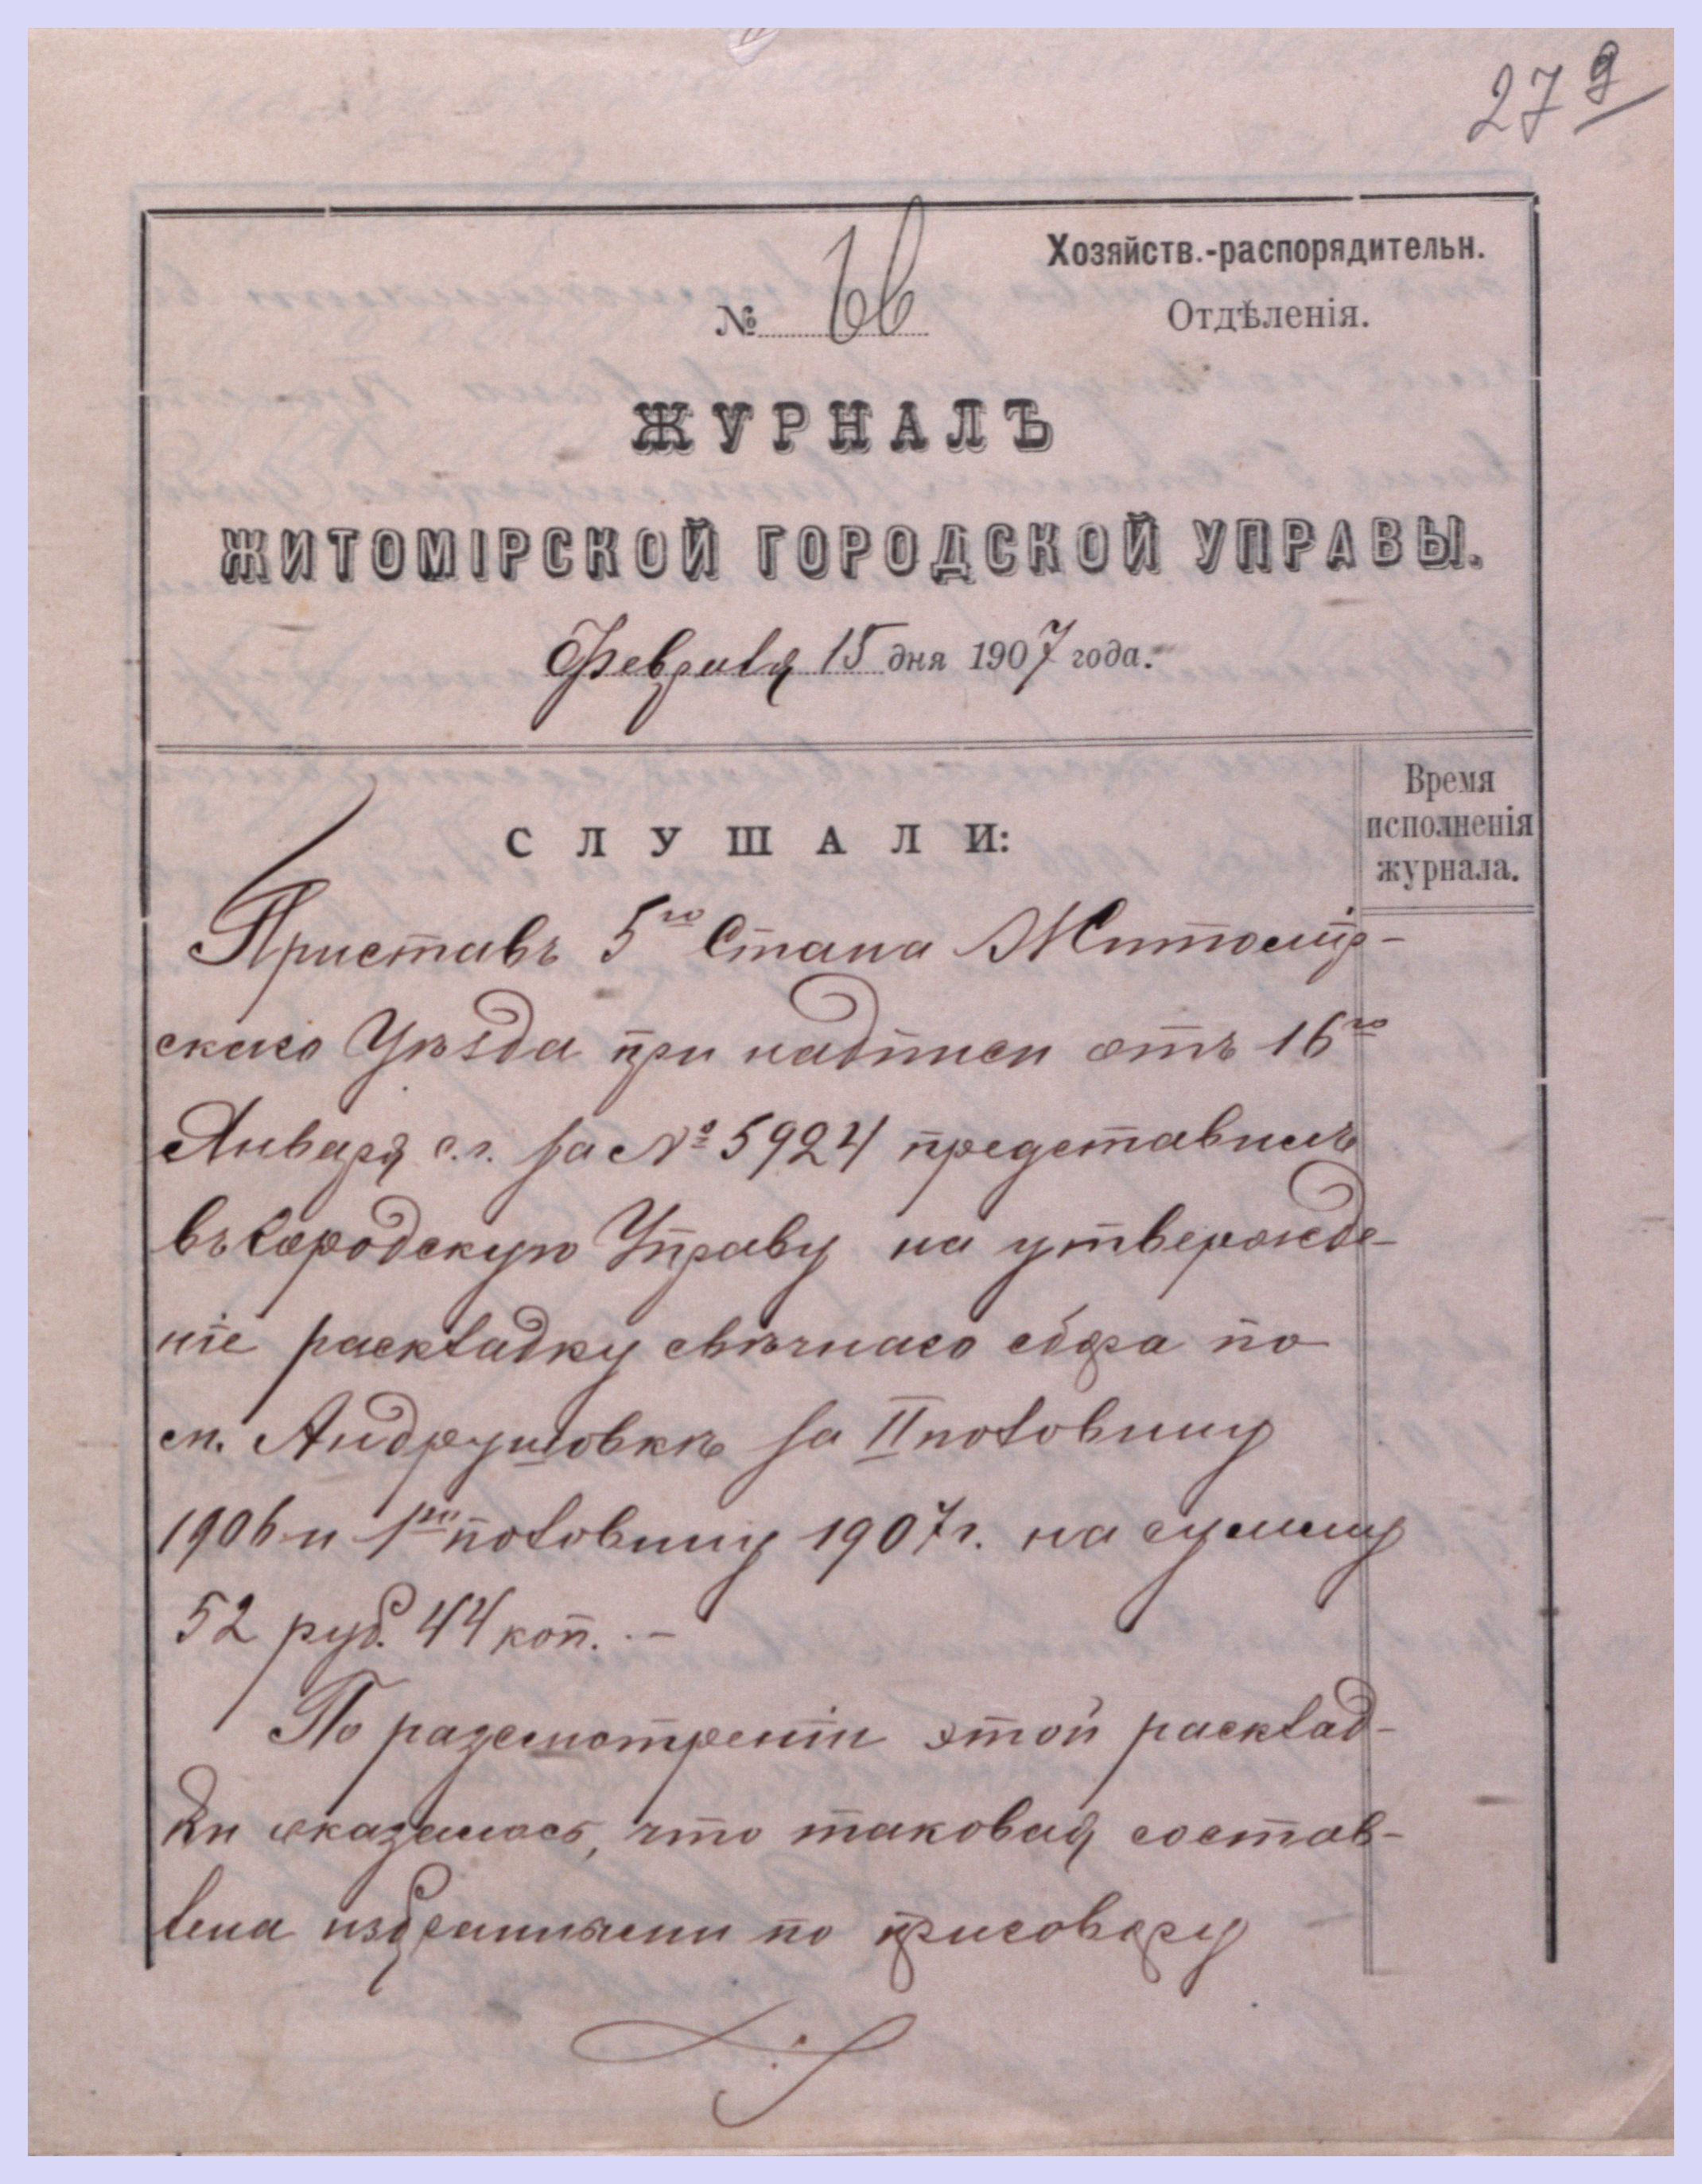 279
Хозяйств.-распорядительн.
№ 66
Отдѣленія.
ЖУРНАЛЪ
ЖИТОМІРСКОЙ ГОРОДСКОЙ УПРАВЫ.
Февраля 15 дня 1907 года.
Время
исполненія
журнала.
СЛУШАЛИ:
Приставъ 5го Стана Житомір-
скаго Уѣзда при надписи отъ 16го
Января с.г. за № 5924 представилъ
въ Городскую Управу на утвержде-
ніе раскладку свѣчнаго сбора по
м. Андрушовкѣ за II половину
1906 и 1ую половину 1907 г. на сумму
52 руб. 44 коп. -
По разсмотреніи этой расклад-
ки оказалось, что таковая состав-
лена избранными по приговору